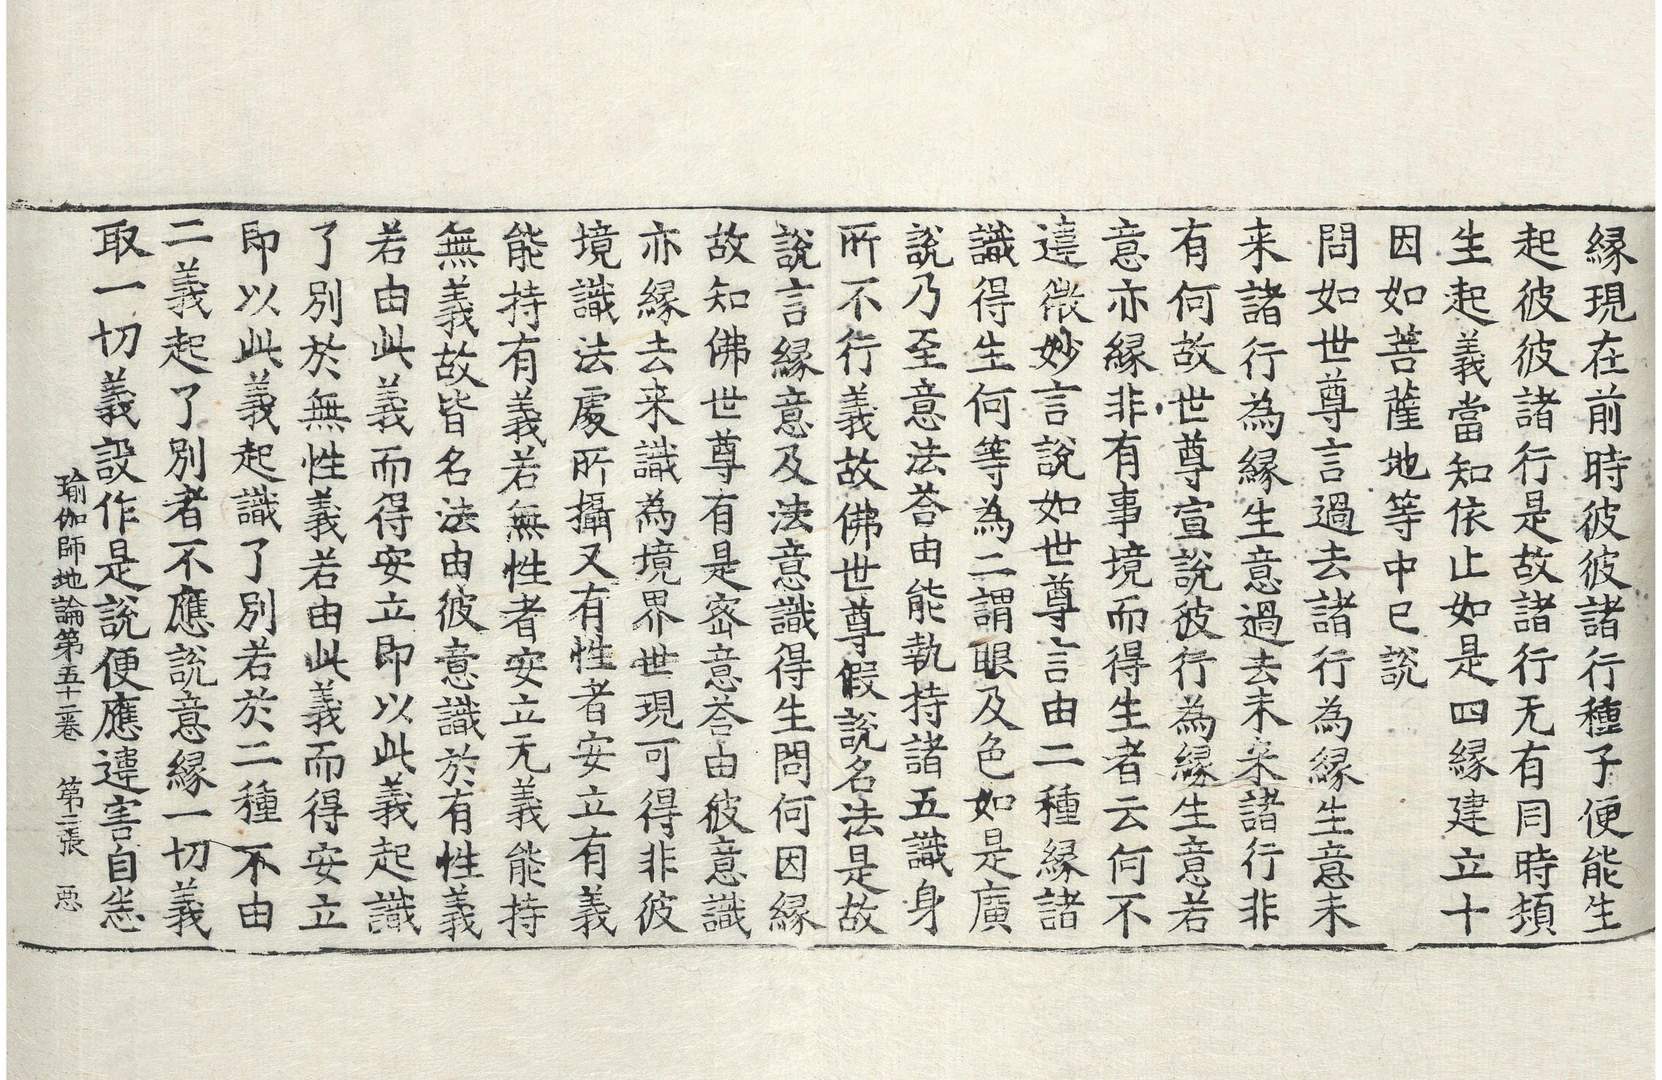 縁現在前時彼彼諸行種子便能生
起彼彼諸行是故諸行无有同時頓
生起義當知依止如是四縁建立十
因如菩薩地等中已説
問如世尊言過去諸行為縁生意未
来諸行為縁生意過去未来諸行非
有何故世尊宣説彼行為縁生意若
意亦縁非有事境而得生者云何不
違微妙言説如世尊言由二種縁諸
識得生何等為二謂眼及色如是廣
説乃至意法荅由能執持諸五識身
所不行義故佛世尊假説名法是故
説言縁意及法意識得生問何因縁
故知佛世尊有是密意荅由彼意識
亦縁去来識為境界世現可得非彼
境識法處所攝又有性者安立有義
能持有義若無性者安立无義能持
無義故皆名法由彼意識於有性義
若由此義而得安立即以此義起識
了別於無性義若由此義而得安立
即以此義起識了別若於二種不由
二義起了別者不應説意縁一切義
取一切義設作是説便應違害自悉
瑜伽師地論第五十二卷　第二張　惡